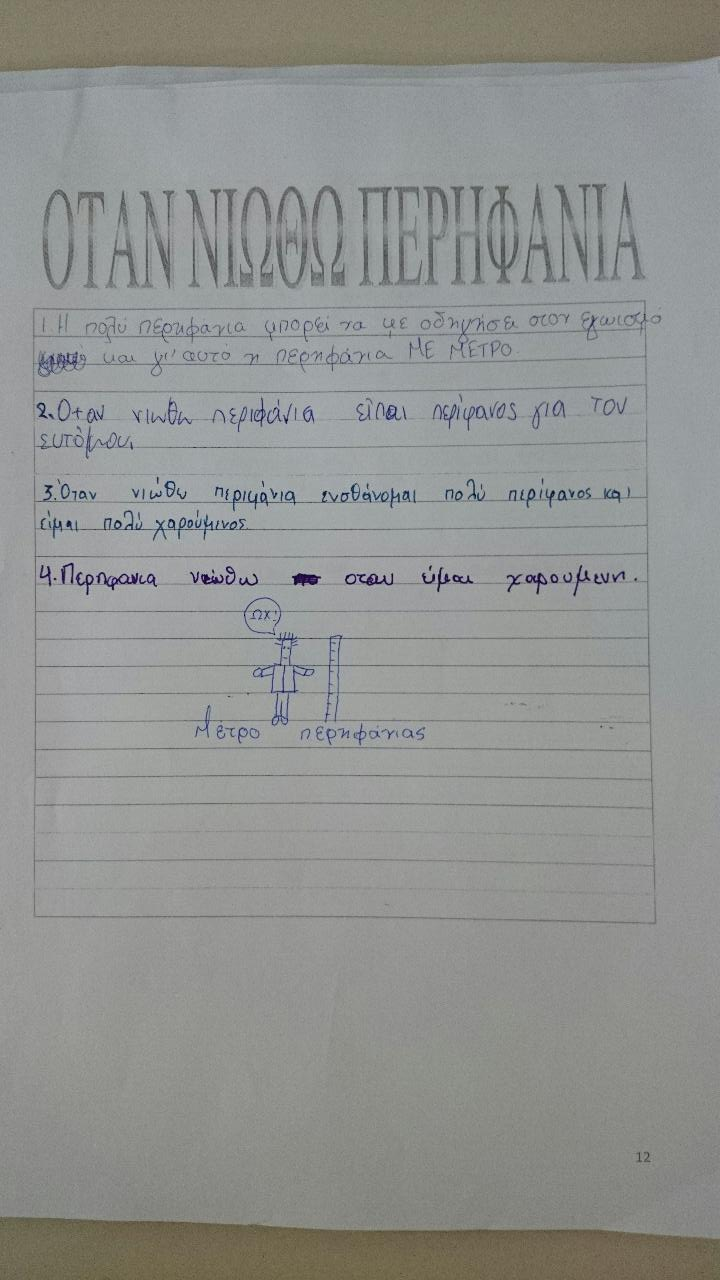 ΟΤΑΝ ΝΙΩΘΩ ΠΕΡΗΦΑΝΙΑ
1. Η πολύ περηφανια μπορεί να με οδηγήσει στον εγωισμό
και γι' αυτό η περηφάνια ΜΕ ΜΕΤΡΟ.
2. Οταν νιωθω περιφάνια είμαι περίφανος για τον
ευτόμου.
3. Όταν νιώθω περιφάνια ενσθάνομαι πολύ περίφανος και
είμαι πολύ χαρούμινος.
4. Περηφανια νιώθω οταν είμαι χαρουμενη.
ΩΧ!
Μέτρο περηφάνιας
12